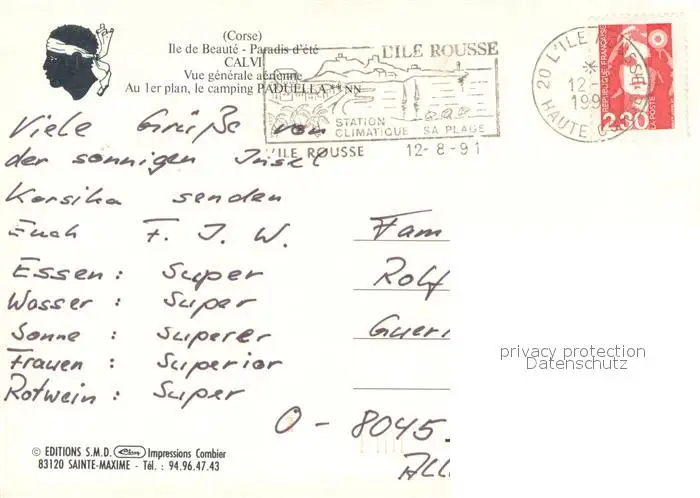 (Corse)
Ile de Beauté - Paradis d'été
CALVI
Vue générale aérienne
Au 1er plan, le camping PADUELLA **NN
L'ILE ROUSSE
STATION
CLIMATIQUE SA PLAGE
L'ILE ROUSSE 12-8-91
20 L'ILE
12-
199
HAUTE CORSE
REPUBLIQUE FRANÇAISE
2,30
LA POSTE
Viele Grüße von
der sonnigen Insel
Korsika senden
Euch F. J. W.
Essen : Super
Wasser : Super
Sonne : Superer
Frauen : Superior
Rotwein : Super
Fam
Rolf
Gueri
0 - 8045
privacy protection
Datenschutz
© EDITIONS S.M.D. Cim Impressions Combier
83120 SAINTE-MAXIME - Tél. : 94.96.47.43